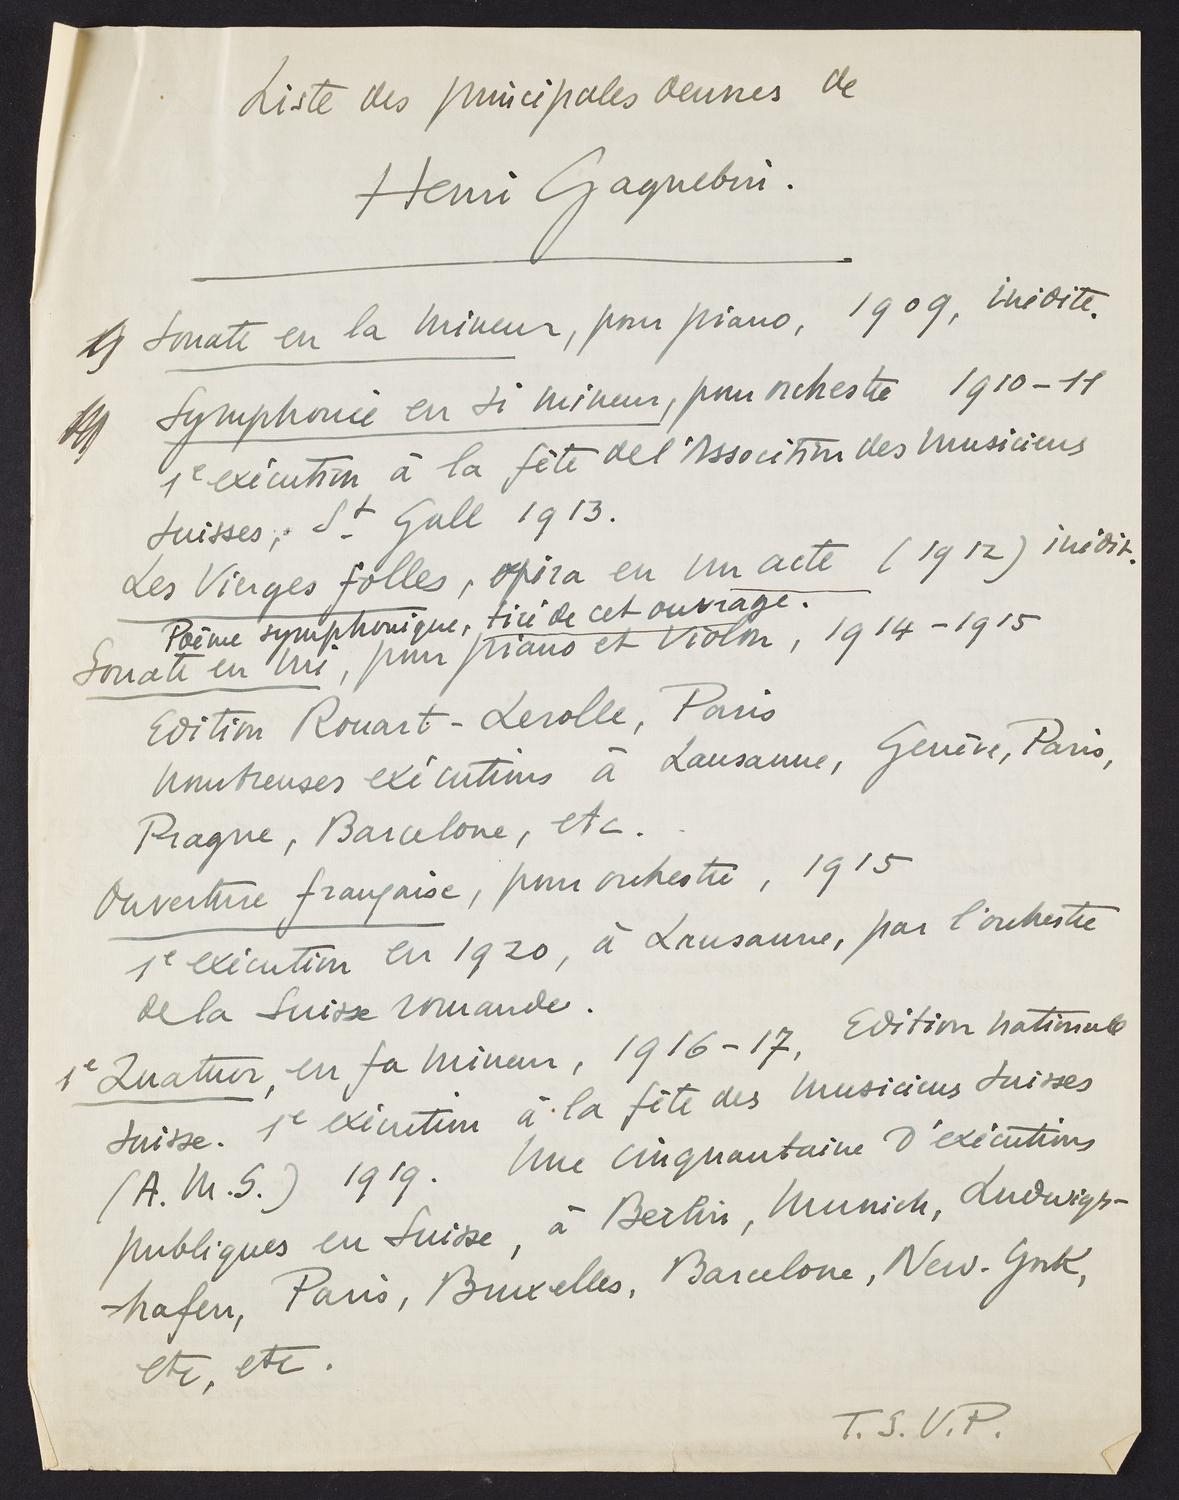 Liste des principales oeuvres de
Henri Gagnebin.
Sonate en la mineur, pour piano, 1909, inédite.
Symphonie en si mineur, pour orchestre 1910-11
1e exécution à la fête de l'Association des Musiciens
suisses, St Gall 1913.
Les Vierges folles, opéra en un acte (1912) inédit.
Poème symphonique, tiré de cet ouvrage.
Sonate en mi, pour piano et violon, 1914-1915
Edition Rouart-Lerolle, Paris
nombreuses exécutions à Lausanne, Genève, Paris,
Prague, Barcelone, etc.
Ouverture française, pour orchestre, 1915
1e exécution en 1920, à Lausanne, par l'orchestre
de la Suisse romande.
1e Quatuor, en fa mineur, 1916-17, Edition nationale
suisse. 1e exécution à la fête des Musiciens suisses
(A.M.S.) 1919. Une cinquantaine d'exécutions
publiques en Suisse, à Berlin, Munich, Ludwigs-
-hafen, Paris, Bruxelles, Barcelone, New-York,
etc, etc.
T.S.V.P.